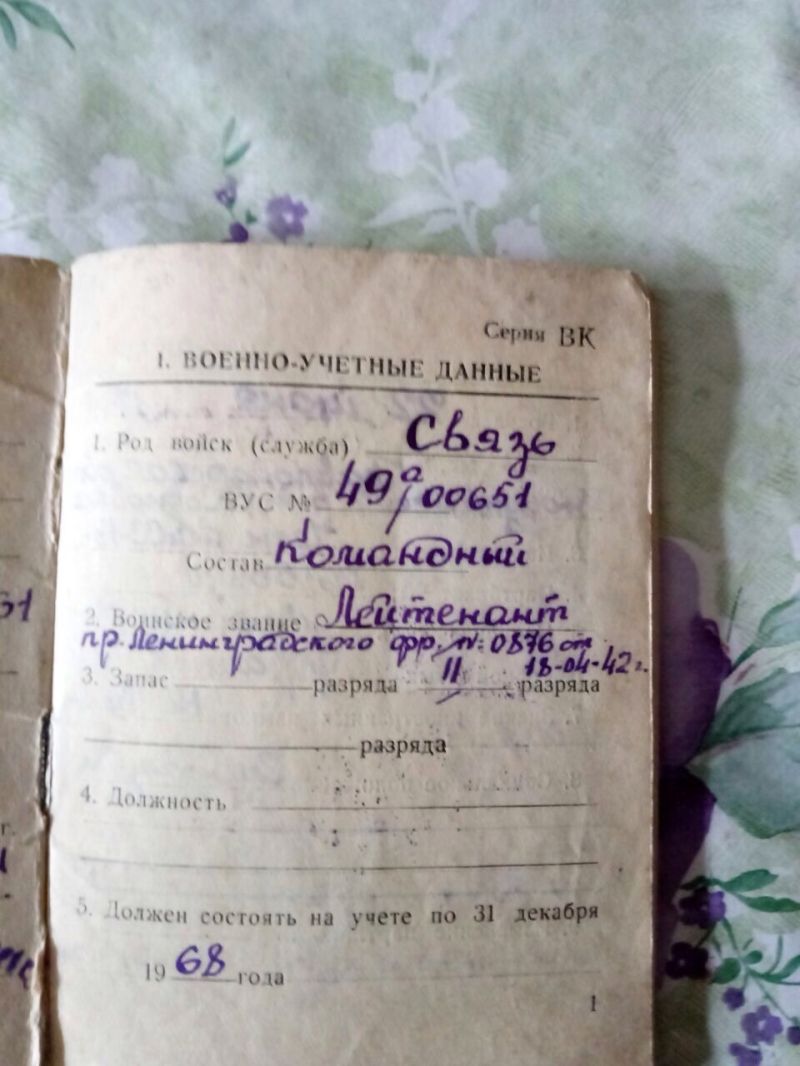 Серия ВК
1. ВОЕННО-УЧЕТНЫЕ ДАННЫЕ
1. Род войск (служба) Связь
ВУС № 49а/00651
Состав Командный
2. Воинское звание Лейтенант
пр. Ленинградского фр. №: 0876 от
18-04-42 г.
3. Запас разряда II разряда
разряда
4. Должность
5. Должен состоять на учете по 31 декабря
1968 года
1
51
г.